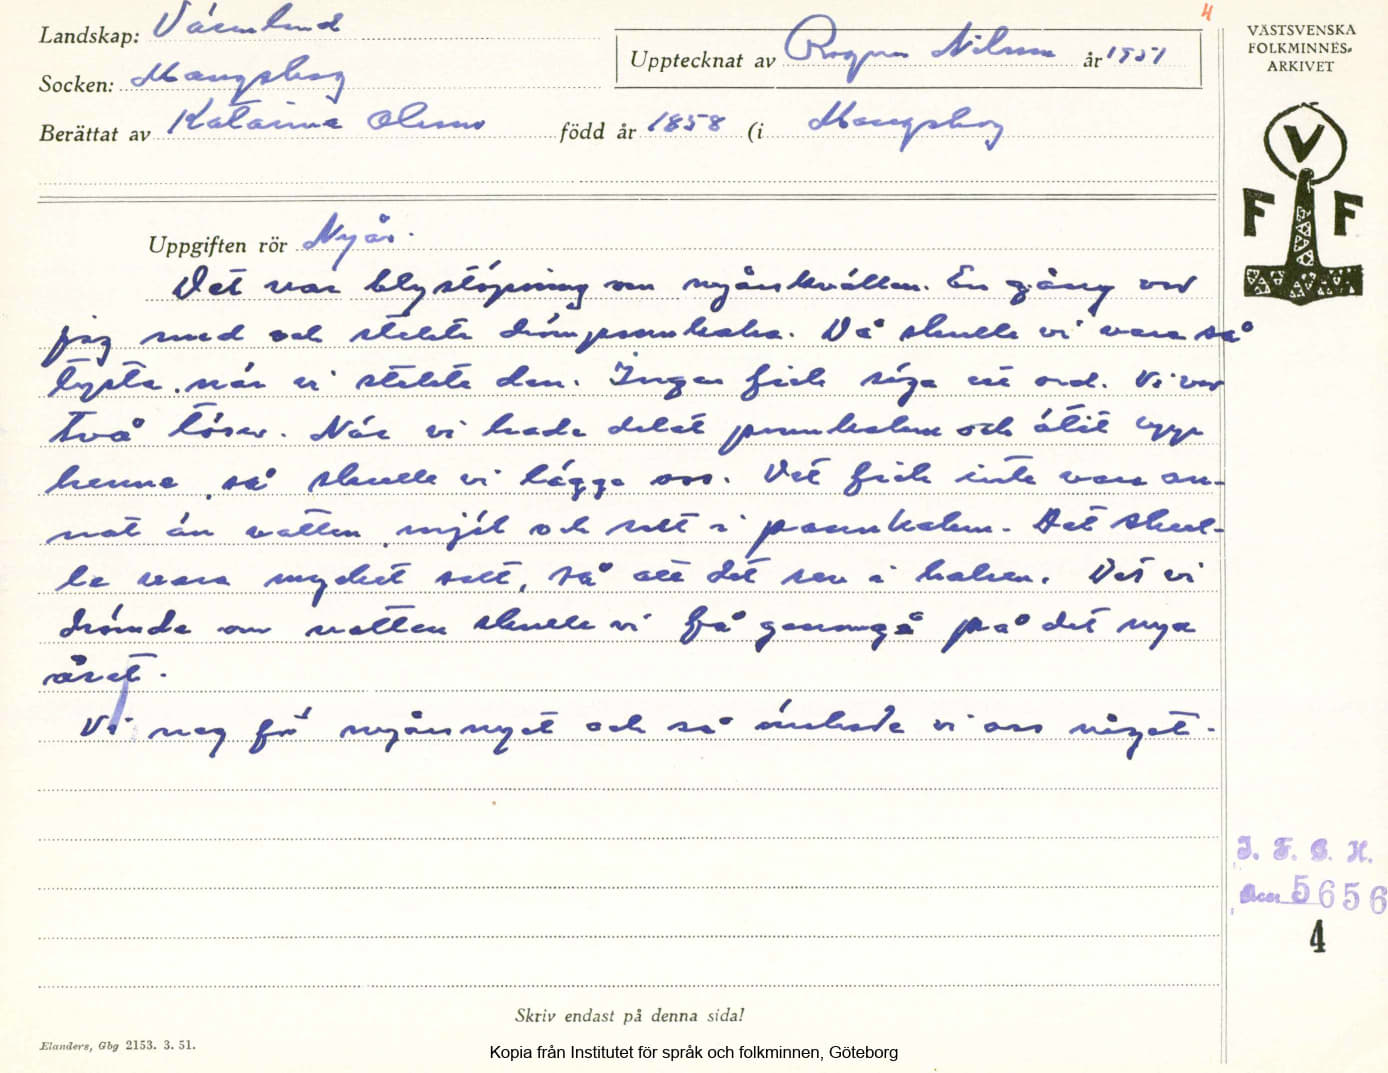 4
Landskap: Värmland
Socken: Mangskog
Upptecknat av Ragnar Nilsson år 1951
Berättat av Katarina Olsson född år 1858 (i Mangskog
VÄSTSVENSKA
FOLKMINNES-
ARKIVET
V
F F
Uppgiften rör Nyår.
Det var blystöpning om nyårskvällen. En gång var
jag med och stekte drömpannkaka. Då skulle vi vara så
tysta, när vi stekte den. Ingen fick säga ett ord. Vi var
två töser. När vi hade delat pannkakan och ätit upp
henne, så skulle vi lägga oss. Det fick inte vara an-
nat än vatten, mjöl och salt i pannkakan. Det skul-
le vara mycket salt, så att det sev i halsen. Det vi
drömde om natten skulle vi få genomgå på det nya
året.
Vi neg för nyårsnyet och så önskade vi oss något.
I. F. G. H.
Acc. 5656
4
Skriv endast på denna sida!
Elanders, Gbg 2153. 3. 51.
Kopia från Institutet för språk och folkminnen, Göteborg